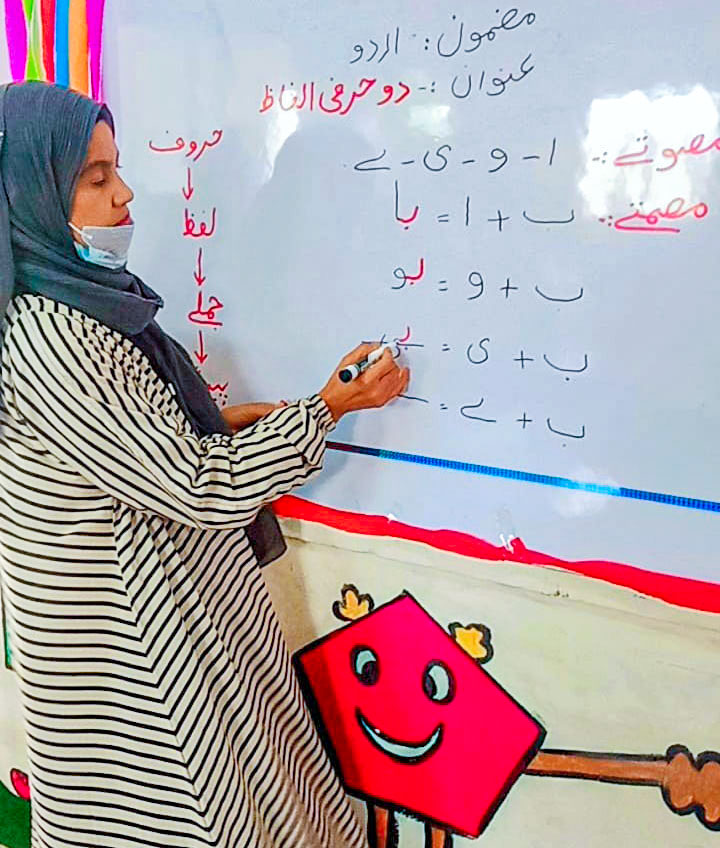 مضمون :- اردو
عنوان :- دو حرفی الفاظ
مصوتے :- ا - و - ی - ے -
مصمتے :- ب + ا = با
ب + و = بو
ب + ی = بی
ب + ے =
حروف
↓
لفظ
↓
جملے
↓